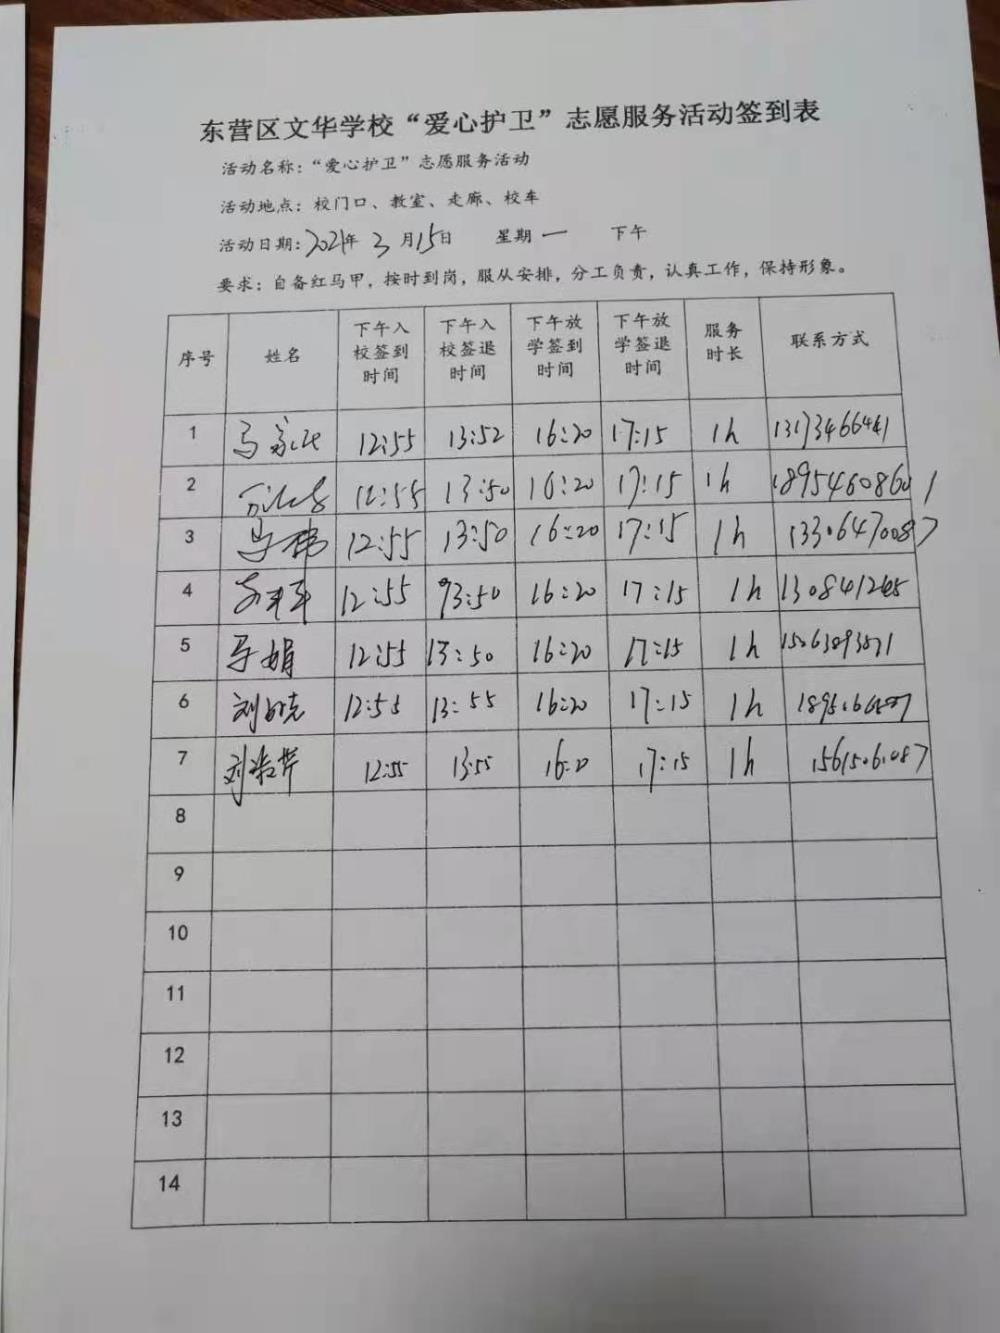 东营区文华学校“爱心护卫”志愿服务活动签到表
活动名称：“爱心护卫”志愿服务活动
活动地点：校门口、教室、走廊、校车
活动日期：2021年3月15日 星期一 下午
要求：自备红马甲，按时到岗，服从安排，分工负责，认真工作，保持形象。
序号 姓名 下午入校签到时间 下午入校签退时间 下午放学签到时间 下午放学签退时间 服务时长 联系方式
1 12:55 13:52 16:20 17:15 1h 13173466441
2 12:55 13:50 16:20 17:15 1h 18954608601
3 马 12:55 13:50 16:20 17:15 1h 13306470087
4 12:55 93:50 16:20 17:15 1h
5 马娟 12:55 13:50 16:20 17:15 1h
6 刘晓 12:55 13:55 16:20 17:15 1h
7 刘 12:55 13:55 17:15 1h
8
9
10
11
12
13
14